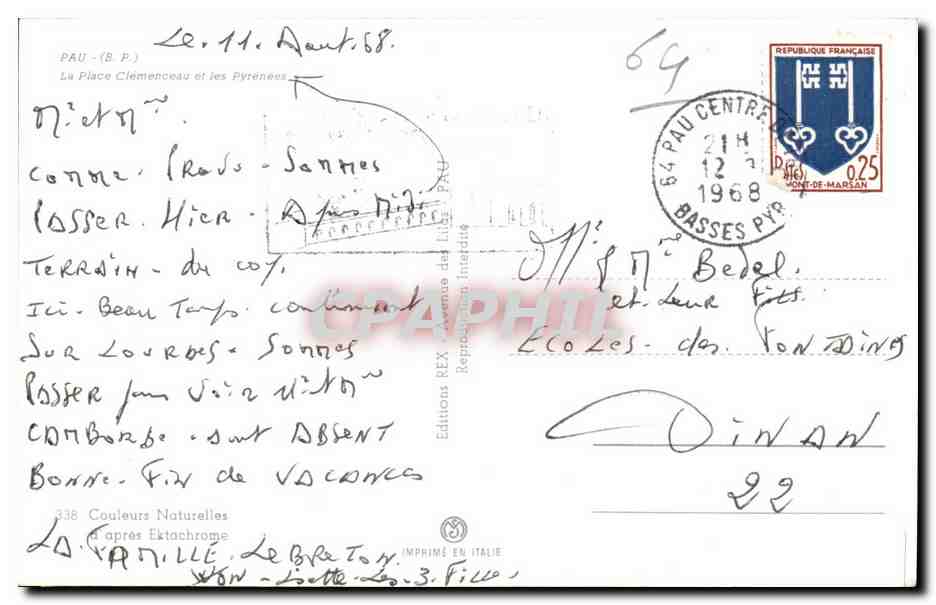 Le. 11. Aout. 68.
PAU - (B. P.)
La Place Clémenceau et les Pyrénées
64
REPUBLIQUE FRANÇAISE
0,25
MONT-DE-MARSAN
64 PAU CENTRE
21 H
12
1968
BASSES PYR.
Mr et Mme
comme. Prevu - Sommes
Passer. Hier - Apres Midi
TERRAIN - du
Ici - Beau Temps. continuent
Sur Lourdes - Sommes
Passer pour Voir Mr et Mme
CAMBORDE - sont ABSENT
BONNE - Fin de VACANCES
LA FAMILLE - LeBreTON
- Lisette - Les - 3. Filles
338 Couleurs Naturelles
d'après Ektachrome
IMPRIMÉ EN ITALIE
Editions REX - Avenue des Lilas - PAU
Reproduction Interdite
Mr & Me Bedel.
et. Leur Fils.
ECOLES - des
DiNAN
22
CPAPHIL